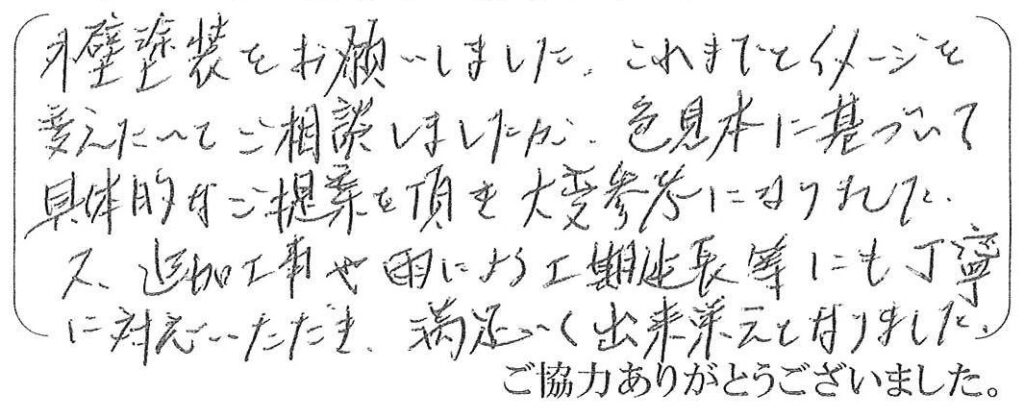 外壁塗装をお願いしました。これまでとイメージを
変えたいとご相談しましたが、色見本に基づいて
具体的なご提案を頂き大変参考になりました。
又、追加工事や雨による工期延長等にも丁寧
に対応いただき、満足いく出来栄えとなりました。
ご協力ありがとうございました。